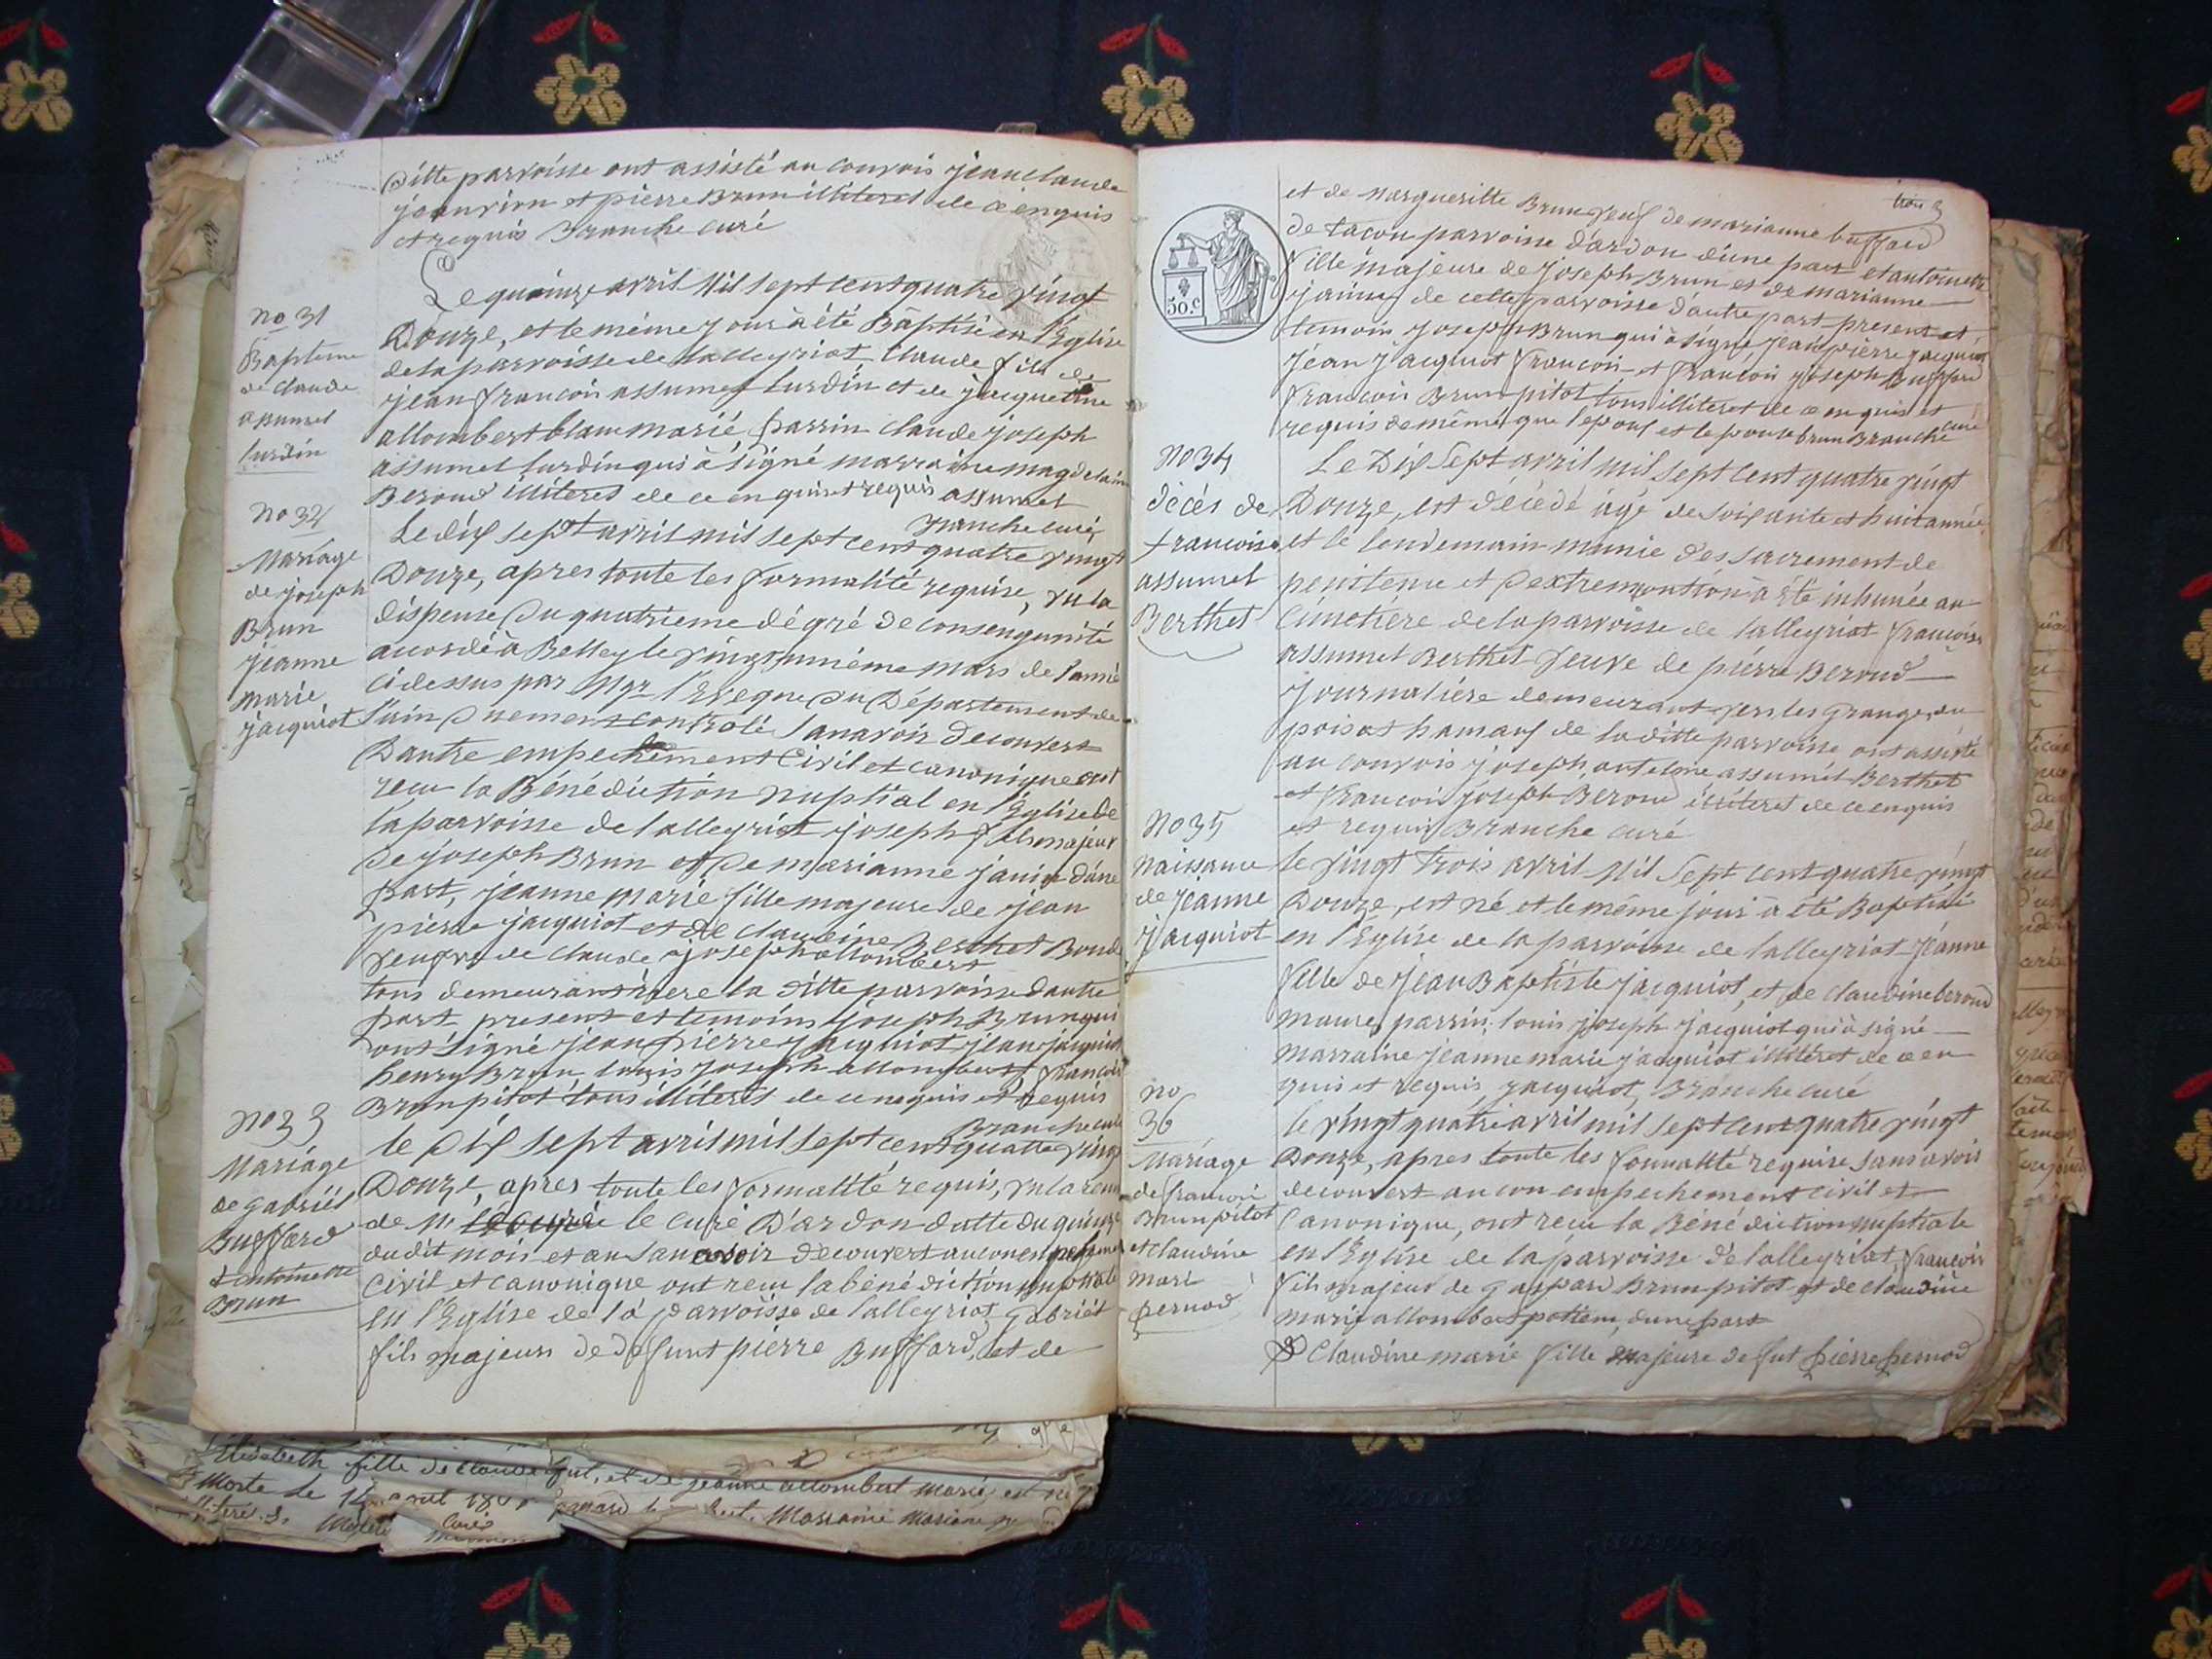 ditte parroisse ont assisté au convois jean claude
jeanvion et pierre Brun illiteret de ce enquis
et requis Branche curé
no 31
Bapteme
de claude
assumet
surdin
Le quinze avril Mil sept cent quatre vingt
Douze, et le même jour à été Baptisé en l'Eglise
de la parroisse de Lalleyriat Claude fils de
jean françois assumet surdin et de jacquetine
allombert blanc marié, parrin claude joseph
assumet surdin qui à signé marraine magdelaine
Beroud illiteres de ce enquis et requis assumet
Branche curé
no 32
Mariage
de joseph
Brun
jeanne
marie
jacquiot
Le dix sept avril mil sept cent quatre vingt
Douze, apres toute les formalité requise, vu la
dispense du quatrieme dégré de consenguinité
acordé à Belley le vingt unième mars de l'anné
ci dessus par Mgr l'Eveque du Département de
l'ain duement controlé, sans avoir decouvert
Dautre empechement Civil et canonique ont
recu la Bénédiction nuptial en l'Eglise de
la parroisse de lalleyriat joseph fils majeur
de joseph Brun et de marianne janin d'une
part, jeanne marie fille majeure de jean
pierre jacquiot et de claudine Berthet Bonde
veufve de claude joseph allombert
tous demeurans riere la ditte parroisse d'autre
part presens et temoins joseph Brun qui
ont signé jean pierre jacquiot jean jacquiot
henry Brun louis joseph allombert françois
Brun pitot tous illiterés de ce enquis et requis
Branche curé
no 33
Mariage
de gabriël
Buffard
& antoinette
Brun
le dix sept avril mil sept cent quatre vingt
Douze, apres toute les formallté requis, vu la remise
de Mr le curé D'ardon datte du quinze
dudit mois et an sans avoir decouvert aucun empechement
Civil et canonique ont recu la bénédiction nuptiale
en l'Eglise de la parroisse de lalleyriat Gabriël
fils majeur de defunt pierre Buffard, et de
trois 3
50.c
et de Marguerite Brun, veuf de marianne buffard
de tacon parroisse d'ardon d'une part et antoinette
fille majeure de joseph Brun et de marianne
janin, de cette parroisse d'autre part present et
temoin joseph Brun qui à signé jean pierre jacquiot
jean jacquiot françois et françois joseph Buffard
françois Brun pitot tous illiteret de ce enquis et
requis de même que l'epoux et lepouse brun Branche curé
no 34
décés de
francoise
assumet
Berthet
Le Dix Sept avril mil sept cent quatre vingt
Douze, est décedé agé de soixante et huit année
et le lendemain munie des sacrement de
penitence et d'extremontion à été inhumée au
cimetiere de la parroisse de lalleyriat françoise
assumet Berthet veuve de pierre Beroud
journaliere demeurant vers les granges du
poisat hamaux de la ditte parroisse ont assisté
au convois joseph antoine assumet Berthet
et françois joseph Beroud illiteret de ce enquis
et requis Branche curé
no 35
Naissance
de Jeanne
Jacquiot
le vingt trois avril Mil Sept cent quatre vingt
Douze, est né et le même jour à été Baptisé
en l'Eglise de la parroisse de lalleyriat Jéanne
fille de Jean Baptiste jacquiot, et de claudine beroud
mariés, parrin louis joseph jacquiot qui à signé
marraine jeanne marie jacquiot illiteret de ce en
quis et requis jacquiot Branche curé
no
36
Mariage
de françois
Brun pitot
et claudine
mari
pernod
le vingt quatre avril mil sept cent quatre vingt
Douze, apres toute les formallté requise sans avoir
decouvert aucun empechement civil et
Canonique, ont recu la Bénédiction nuptiale
en l'Eglise de la parroisse de lalleyriat, françois
fils majeur de gaspard Brun pitot et de claudine
marie allombert pottem, d'une part
& Claudine marie fille majeure de fut pierre pernod
Elisabeth fille de claude et de jeanne allombert marié, est né
Morte le 14 aout Marraine Mariane